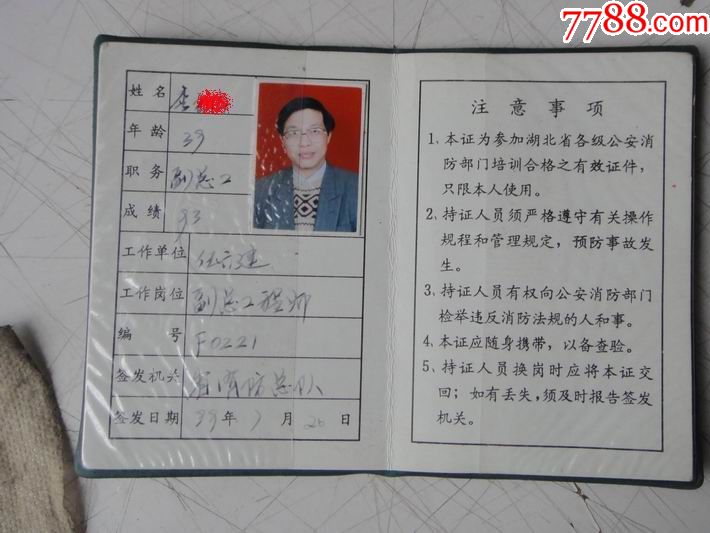 7788.com
中国收藏热线
姓名
年龄 39
职务 副总工
成绩 93
工作单位 六建
工作岗位 副总工程师
编号 F0221
签发机关 消防总队
签发日期 99年7月20日
注意事项
1、本证为参加湖北省各级公安消
防部门培训合格之有效证件，
只限本人使用。
2、持证人员须严格遵守有关操作
规程和管理规定，预防事故发
生。
3、持证人员有权向公安消防部门
检举违反消防法规的人和事。
4、本证应随身携带，以备查验。
5、持证人员换岗时应将本证交
回；如有丢失，须及时报告签发
机关。